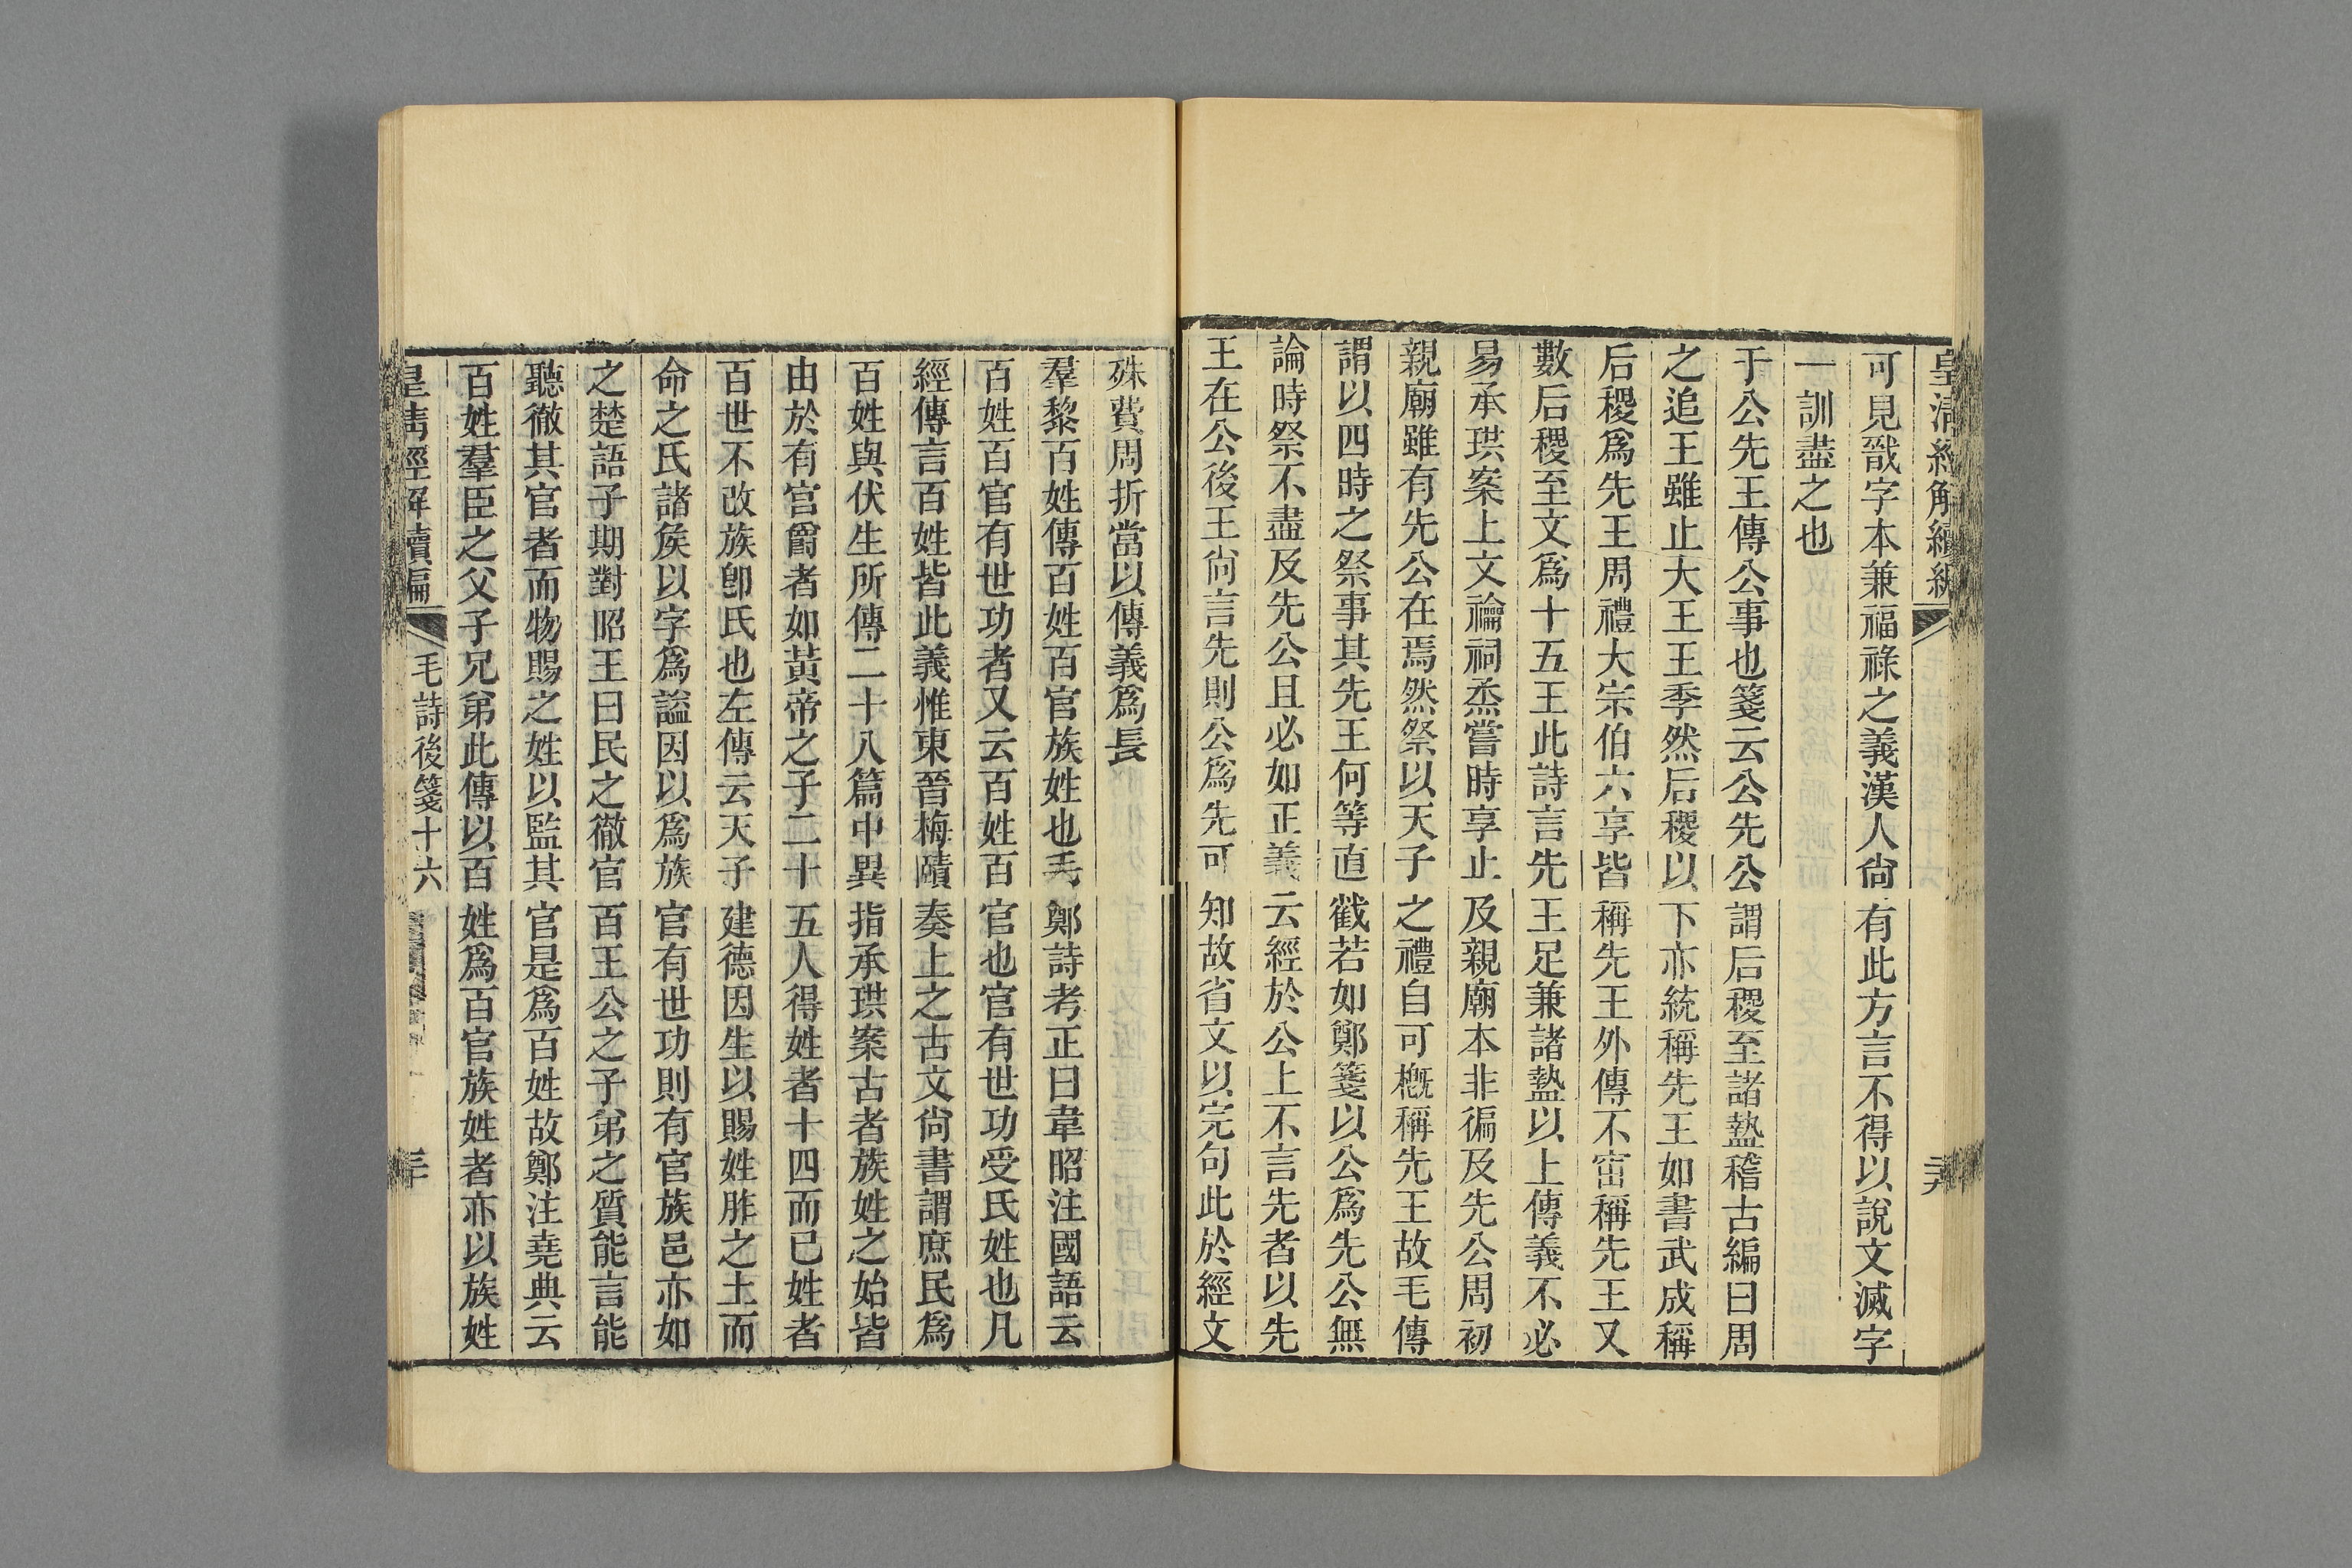 皇清經解續編
可見戩字本兼福祿之義漢人尙有此方言不得以說文滅字
一訓盡之也
于公先王傳公事也箋云公先公謂后稷至諸盩稽古編曰周
之追王雖止大王王季然后稷以下亦統稱先王如書武成稱
后稷爲先王周禮大宗伯六享皆稱先王外傳不窋稱先王又
數后稷至文爲十五王此詩言先王足兼諸盩以上傳義不必
易承珙案上文禴祠烝嘗時享止及親廟本非徧及先公周初
親廟雖有先公在焉然祭以天子之禮自可槪稱先王故毛傳
謂以四時之祭事其先王何等直截若如鄭箋以公爲先公無
論時祭不盡及先公且必如正義云經於公上不言先者以先
王在公後王尙言先則公爲先可知故省文以完句此於經文
殊費周折當以傳義爲長
羣黎百姓傳百姓百官族姓也毛鄭詩考正曰韋昭注國語云
百姓百官有世功者又云百姓百官也官有世功受氏姓也凡
經傳言百姓皆此義惟東晉梅賾奏上之古文尙書謂庶民爲
百姓與伏生所傳二十八篇中異指承珙案古者族姓之始皆
由於有官爵者如黃帝之子二十五人得姓者十四而已姓者
百世不改族卽氏也左傳云天子建德因生以賜姓胙之土而
命之氏諸矦以字爲謚因以爲族官有世功則有官族邑亦如
之楚語子期對昭王曰民之徹官百王公之子弟之質能言能
聽徹其官者而物賜之姓以監其官是爲百姓故鄭注堯典云
百姓羣臣之父子兄弟此傳以百姓爲百官族姓者亦以族姓
皇清經解續編 毛詩後箋十六